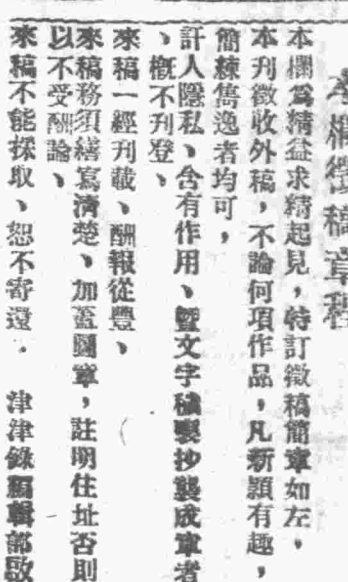 本欄徵稿章程
本欄爲精益求精起見，特訂徵稿簡章如左，
本刊徵收外稿，不論何項作品，凡新穎有趣，
簡練雋逸者均可，
訐人隱私、含有作用、曁文字穢褻抄襲成章者
、槪不刊登、
來稿一經刊載、酬報從豐、
來稿務須繕寫淸楚、加蓋圖章，註明住址否則
以不受酬論、
來稿不能採取、恕不寄還． 津津錄編輯部啟